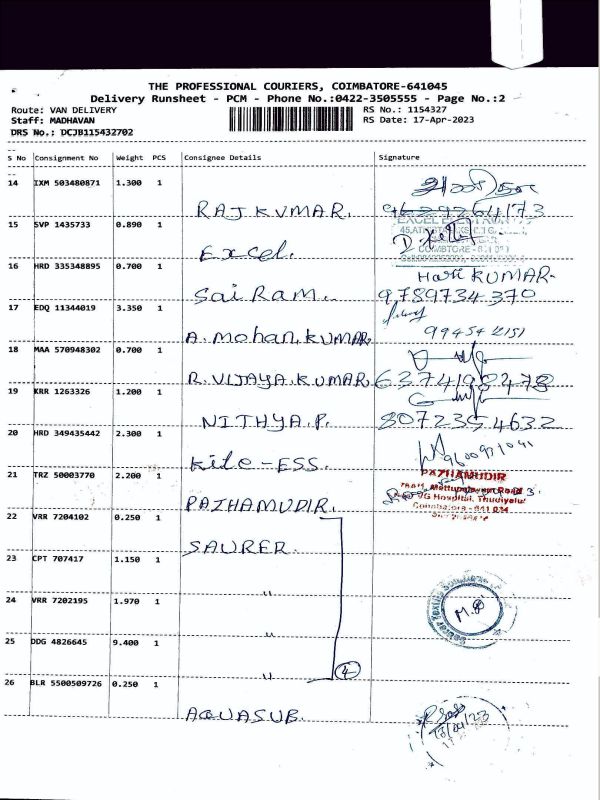 THE PROFESSIONAL COURIERS, COIMBATORE-641045
Delivery Runsheet - PCM - Phone No.:0422-3505555 - Page No.:2
Route: VAN DELIVERY
RS No.: 1154327
Staff: MADHAVAN
RS Date: 17-Apr-2023
DRS No.: DCJB115432702
S No Consignment No Weight PCS Consignee Details Signature
14 IXM 503480871 1.300 1
RAJKUMAR. 9629264173
15 SVP 1435733 0.890 1
Excel.
16 HRD 335348895 0.700 1
Hari KUMAR-
Sai Ram. 9789734370
17 EDQ 11344019 3.350 1
A. Mohan.KUMAR 9945412151
18 MAA 570948302 0.700 1
R. VIJAYA.KUMAR 6374198478
19 KRR 1263326 1.200 1
NITHYA.P. 8072354632
20 HRD 349435442 2.300 1
9600971041
Kite-ESS.
21 TRZ 50003770 2.200 1
PAZHAMUDIR
Mettupalayam Road
G Hospital, Thudiyalur
Coimbatore - 641 034
PAZHAMUDIR.
22 VRR 7204102 0.250 1
SAURER.
23 CPT 707417 1.150 1
"
24 VRR 7202195 1.970 1
"
25 DDG 4826645 9.400 1
"
4
26 BLR 5500509726 0.250 1
AQUASUB.